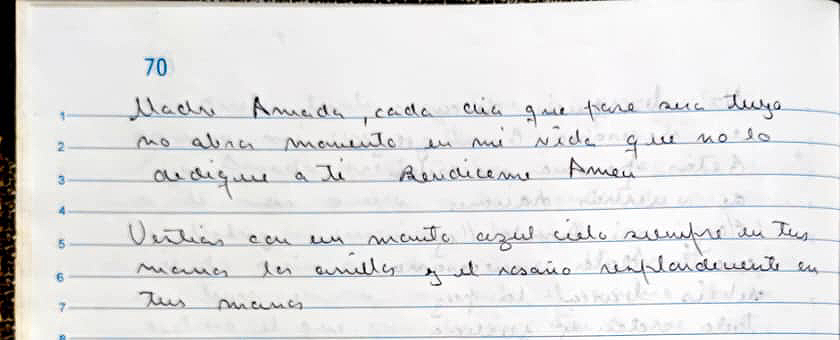 70
1 Madre Amada, cada dia que pase sera tuyo
2 no abra momento en mi vida que no lo
3 dedique a ti Bendiceme Amen
4
5 Vestias con un manto azul cielo siempre en tus
6 manos los anillos y el rosario resplandeciente en
7 tus manos
8